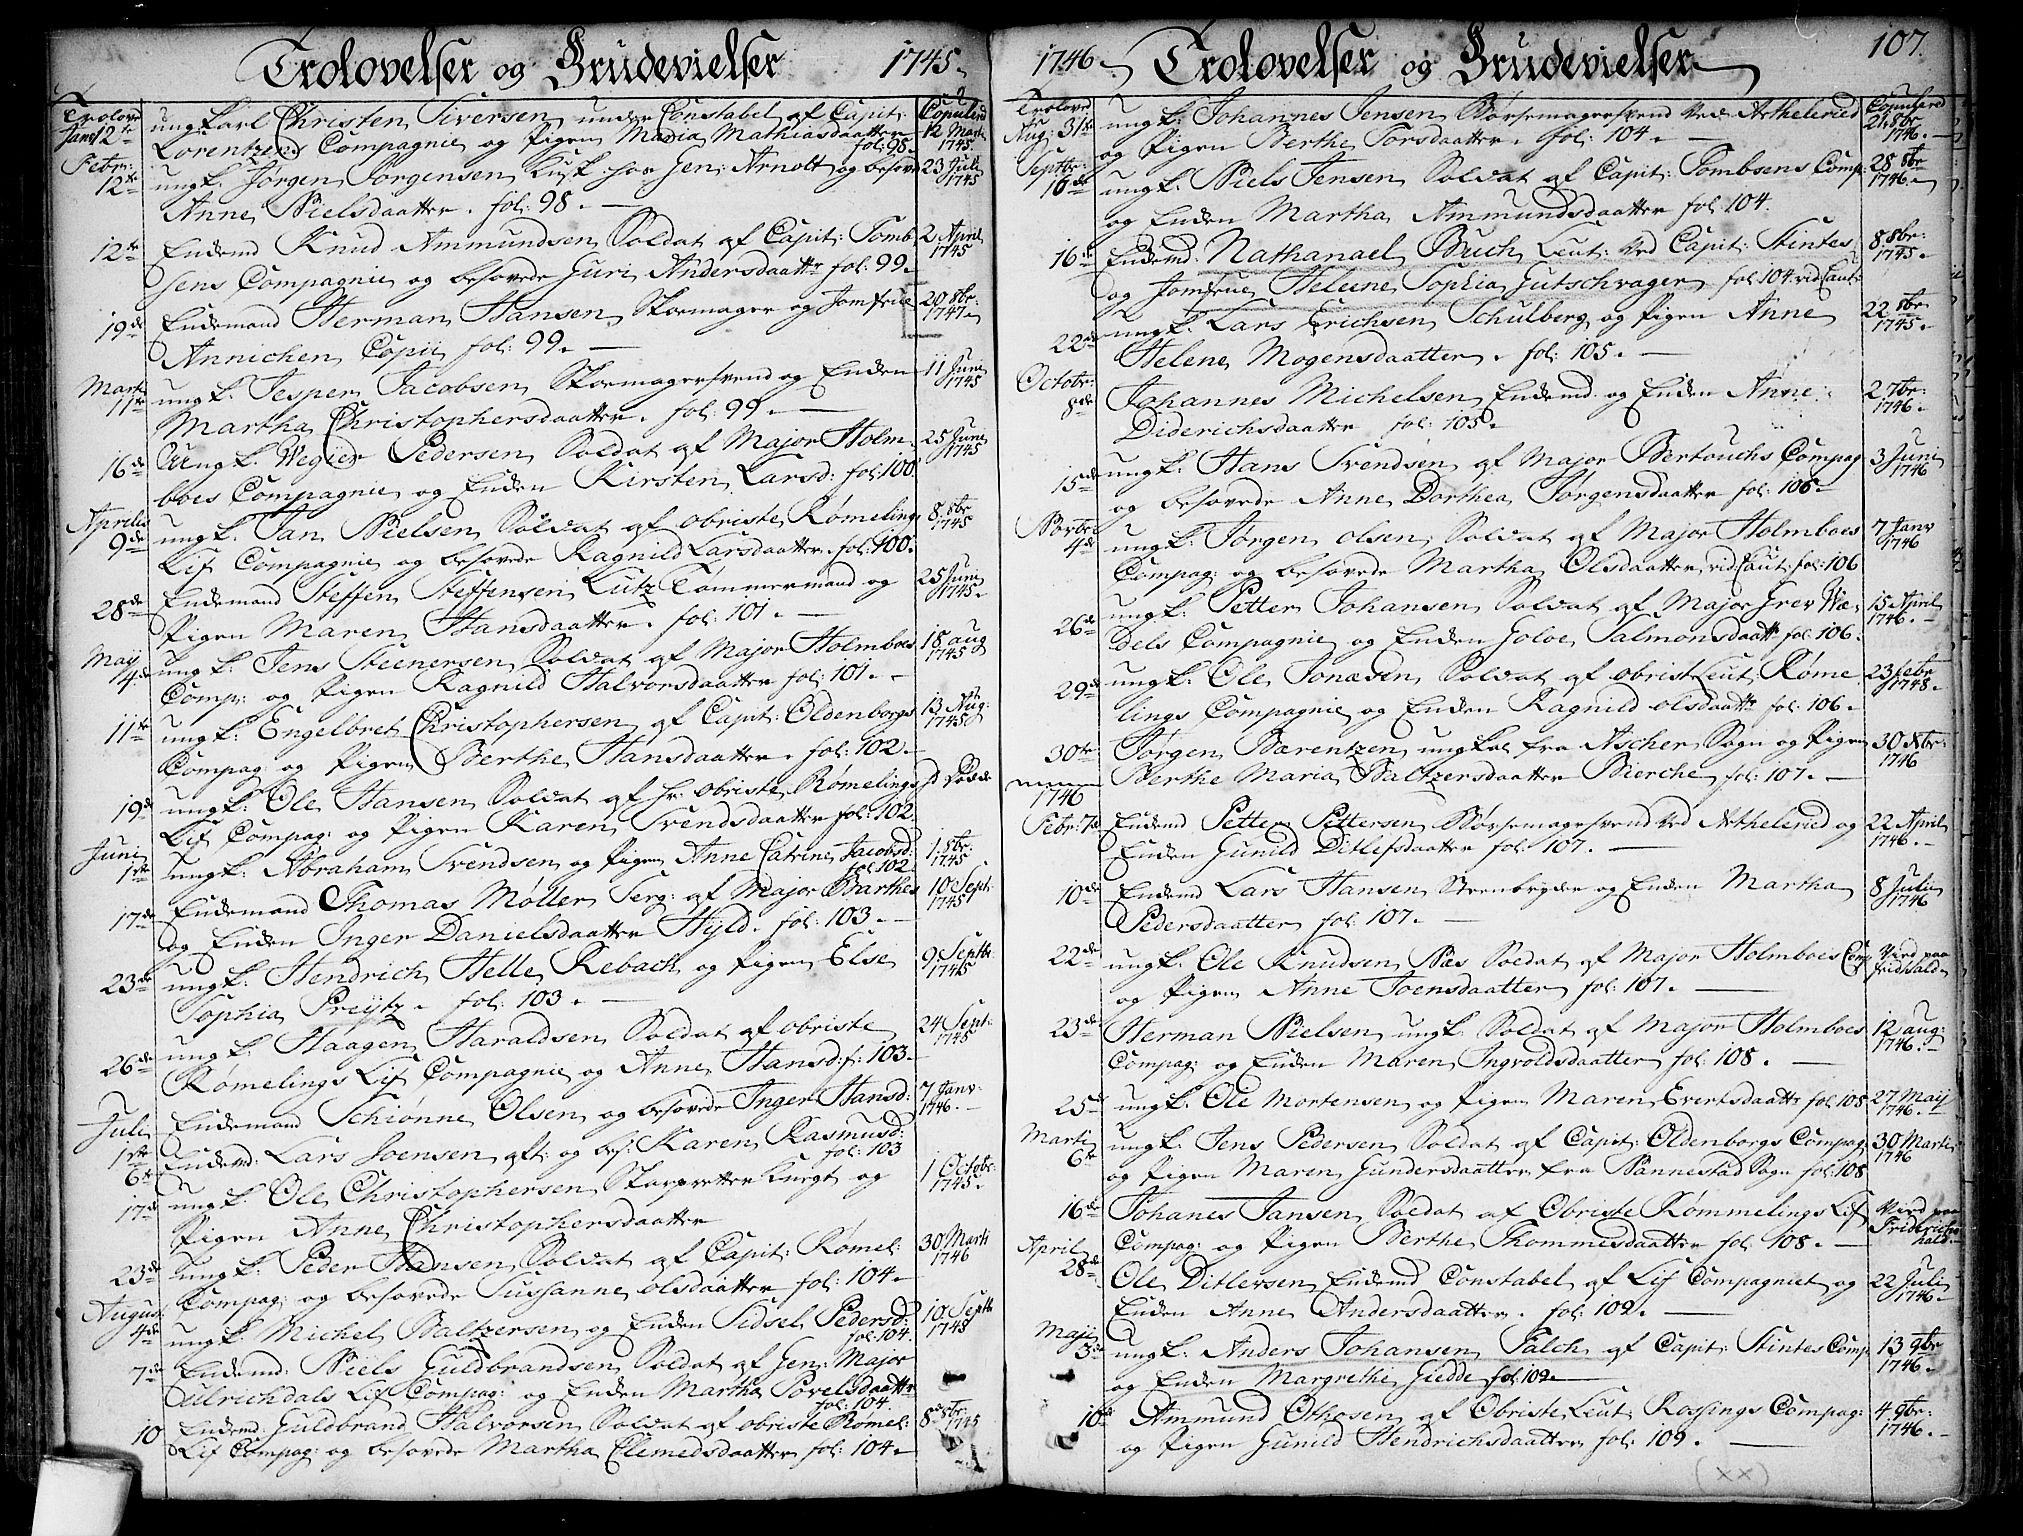 Trolovelser og Brudevielser 1745.
Trolovd Copulerd
Janv 12te ungkarl Christen Siversen, under Constabel af Capit: 12 Marti
Lorentzens Compagnie og Pigen Maria Mathiasdaatter fol: 98. 1745.
Febr: 12te ungk. Jørgen Jørgensen, Kusk hos Gen: Arnolt og besovd 23 Juli 1745
Anne Nielsdaatter. fol: 98.
12te Enkemd Knud Ammundsen, Soldat af Capit: Tomb- 2 April 1745
sens Compagnie og besovede Guri Andersdaatter fol: 99.
19de Enkemand Herman Hansen, Skomager og Jomfrue 20 8br: 1747.
Annichen Copii fol: 99.
Marti 11te ungk. Jesper Jacobsen, Skomagersvend og Enken 11 Juni 1745
Martha Christophersdaatter. fol: 99.
16de ungk. Wegier Pedersen, Soldat af Major Holm- 25 Juni 1745
boes Compagnie og Enken Kirsten Larsd: fol 100.
Aprilis 9de ungk. Jan Nielsen, Soldat af obriste Rømelings 8. 8br 1745
Lif Compagnie og besovede Ragnild Larsdaatter. fol: 100.
28de Enkemand Steffen Steffensen Lutz Tømmermand og 25 Juni 1745.
Pigen Maren Hansdaatter. fol: 101.
Maij 4de ungk. Jens Steenersen, Soldat af Major Holmboes 18 aug 1745
Comp: og Pigen Ragnild Halvorsdaatter fol: 101.
11te ungk: Engelbret Christophersen af Capit: Oldenborgs 13 Aug: 1745
Compag: og Pigen Berthe Hansdaatter. fol: 102.
19de ungk: Ole Hansen, Soldat af hr: obriste Rømelings
Lif Compag: og Pigen Karen Svendsdaatter fol: 102.
Juni 1ste ungk: Abraham Svendsen og Pigen Anne Catrine Jacobsd: fol 102. 1. 8br: 1745
17de Enkemand Thomas Møller Serg: af Major Barthes 10 Sept: 1745
og Enken Inger Danielsdaatter Hyld. fol: 103.
23de ungk: Hendrich Helle Rebach og Pigen Else 9 Septbr: 1745
Sophia Preijtz. fol: 103.
26de ungk. Haagen Haraldsen Soldat af obriste 24 Sept: 1745
Rømelings Lif Compagnie og Anne Hansd: f: 103.
Enkemand Schiønne Olsen og besovede Inger Hansd: 7 Janv: 1746.
Juli 1ste Enkemd: Lars Joensen aft: og bes: Karen Rasmusd: fol: 103
6te
17de ungk. Ole Christophersen, Skarpretter Knegt og 1 Octobr: 1745.
Pigen Anne Christophersdaatter
23de ungk: Peder Hansen, Soldat af Capit: Rømel: 30 Marti 1746
Compag: og besovede Sussanne olsdaatter fol: 104.
August 4de ungk. Michel Baltzersen og Enken Sidsel Pedersd: fol: 104. 10 Septb 1745
7de Enkemd: Niels Guldbrandsen, Soldat af Gen: Major
Ulrichdals Lif Compag: og Enken Martha Povelsdaatter fol: 104.
10 Enkemd: Guldbrand Halvorsen, Soldat af obriste Rømel: 8de 8br: 1745
Lif Compag: og besovede Martha Clemedsdaatter fol: 104.
1746. Trolovelser og Brudevielser 107.
Trolovd Copulerd
Aug: 31te ungk: Johannes Jensen Børsemagersvend ved Artheleried 21. 8br 1746.
og Pigen Berthe Torsdaatter. fol: 104.
Septbr: 10de ungk: Niels Jensen Soldat af Capit: Tombsens Comp: 28 8br 1746.
og Enken Martha Ammundsdaatter fol: 104.
16de Enkemd: Nathanael Buch Leut: ved Capit: Stintes 8. 8br: 1745.
og Jomfrue Helene Sophia Gutschvager fol 104 vid Caut:
22de ungk. Lars Erichsen Schulberg, og Pigen Anne 22 8br 1745.
Helene Mogensdaatter. fol: 105.
Octobr: 8de Johannes Michelsen Enkemd: og Enken Anne 2 7br: 1746.
Diderichsdaatter fol: 105.
15de ungk: Hans Svendsen af Major Bertouchs Compag 3 Juni 1746
og besovede Anne Dorthea Jørgensdaatter fol: 106.
Novbr 4de ungk. Jørgen Olsen, Soldat af Major Holmboes 7 Janv 1746
Compag: og besovede Martha Olsdaatter, vid Caut: fol: 106
26de ungk. Petter Johansen Soldat af Major Grev We- 15 April 1746.
dels Compagnie og Enken Goloe Salmonsdaattr fol 106.
29de ungk: Ole Jonæsen Soldat af obristLeut: Røme- 23 febr 1748.
lings Compagnie og Enken Ragnild olsdaattr fol: 106.
30te Jørgen Bærentzen ungkal fra Ascher Sogn og Pigen 30 Xbr: 1746
Berthe Maria Baltzersdaatter Bierche fol: 107.
1746
Febr: 7de Enkemd Petter Pettersen Børsemagersvend ved Artheleried og 22 April 1746.
Enken Gunild Ditlefsdaatter fol: 107.
10de Enkemd Lars Hansen Steenbryder og Enken Martha 8 Juli 1746
Pedersdaatter fol: 107.
22de ungk. Ole Knudsen Næs Soldat af Major Holmboes Comp Vied paa fridHald
og Pigen Anne Joensdaatter fol: 107.
23de Herman Nielsen ungk. Soldat af Major Holmboes 12 aug: 1746.
Compag: og Enken Maren Ingvoldsdaatter fol: 108.
25de ungk: Ole Mortensen og Pigen Maren Evertsdaattr fol 108 27 Maij 1746.
Marti 6te ungk: Jens Pedersen Soldat af Capit: Oldenborgs Compag: 30 Marti 1746
og Pigen Maren Gundersdaatter fra Nannestad Sogn fol 108
16de Johanes Jansen Soldat af Obriste Rømmelings Lif Vied paa Friderichshald.
Compag: og Pigen Berthe Thommesdaatter fol: 108.
April 28de Ole Ditlevsen Enkemd Constabel af Lif Compagniet og 22 Juli 1746.
Enken Anne Andersdaatter. fol: 109.
Maji 3de ungk: Anders Johansen Falch af Capit: Stintes Comp 13 9br 1746.
og Enken Margrethe Giedde fol 109.
10de Ammund Othesen af ObristeLeut: Rossings Compag: 4. 9br: 1746.
og Pigen Gunild Hendrichsdaatter fol: 109.
(xx)